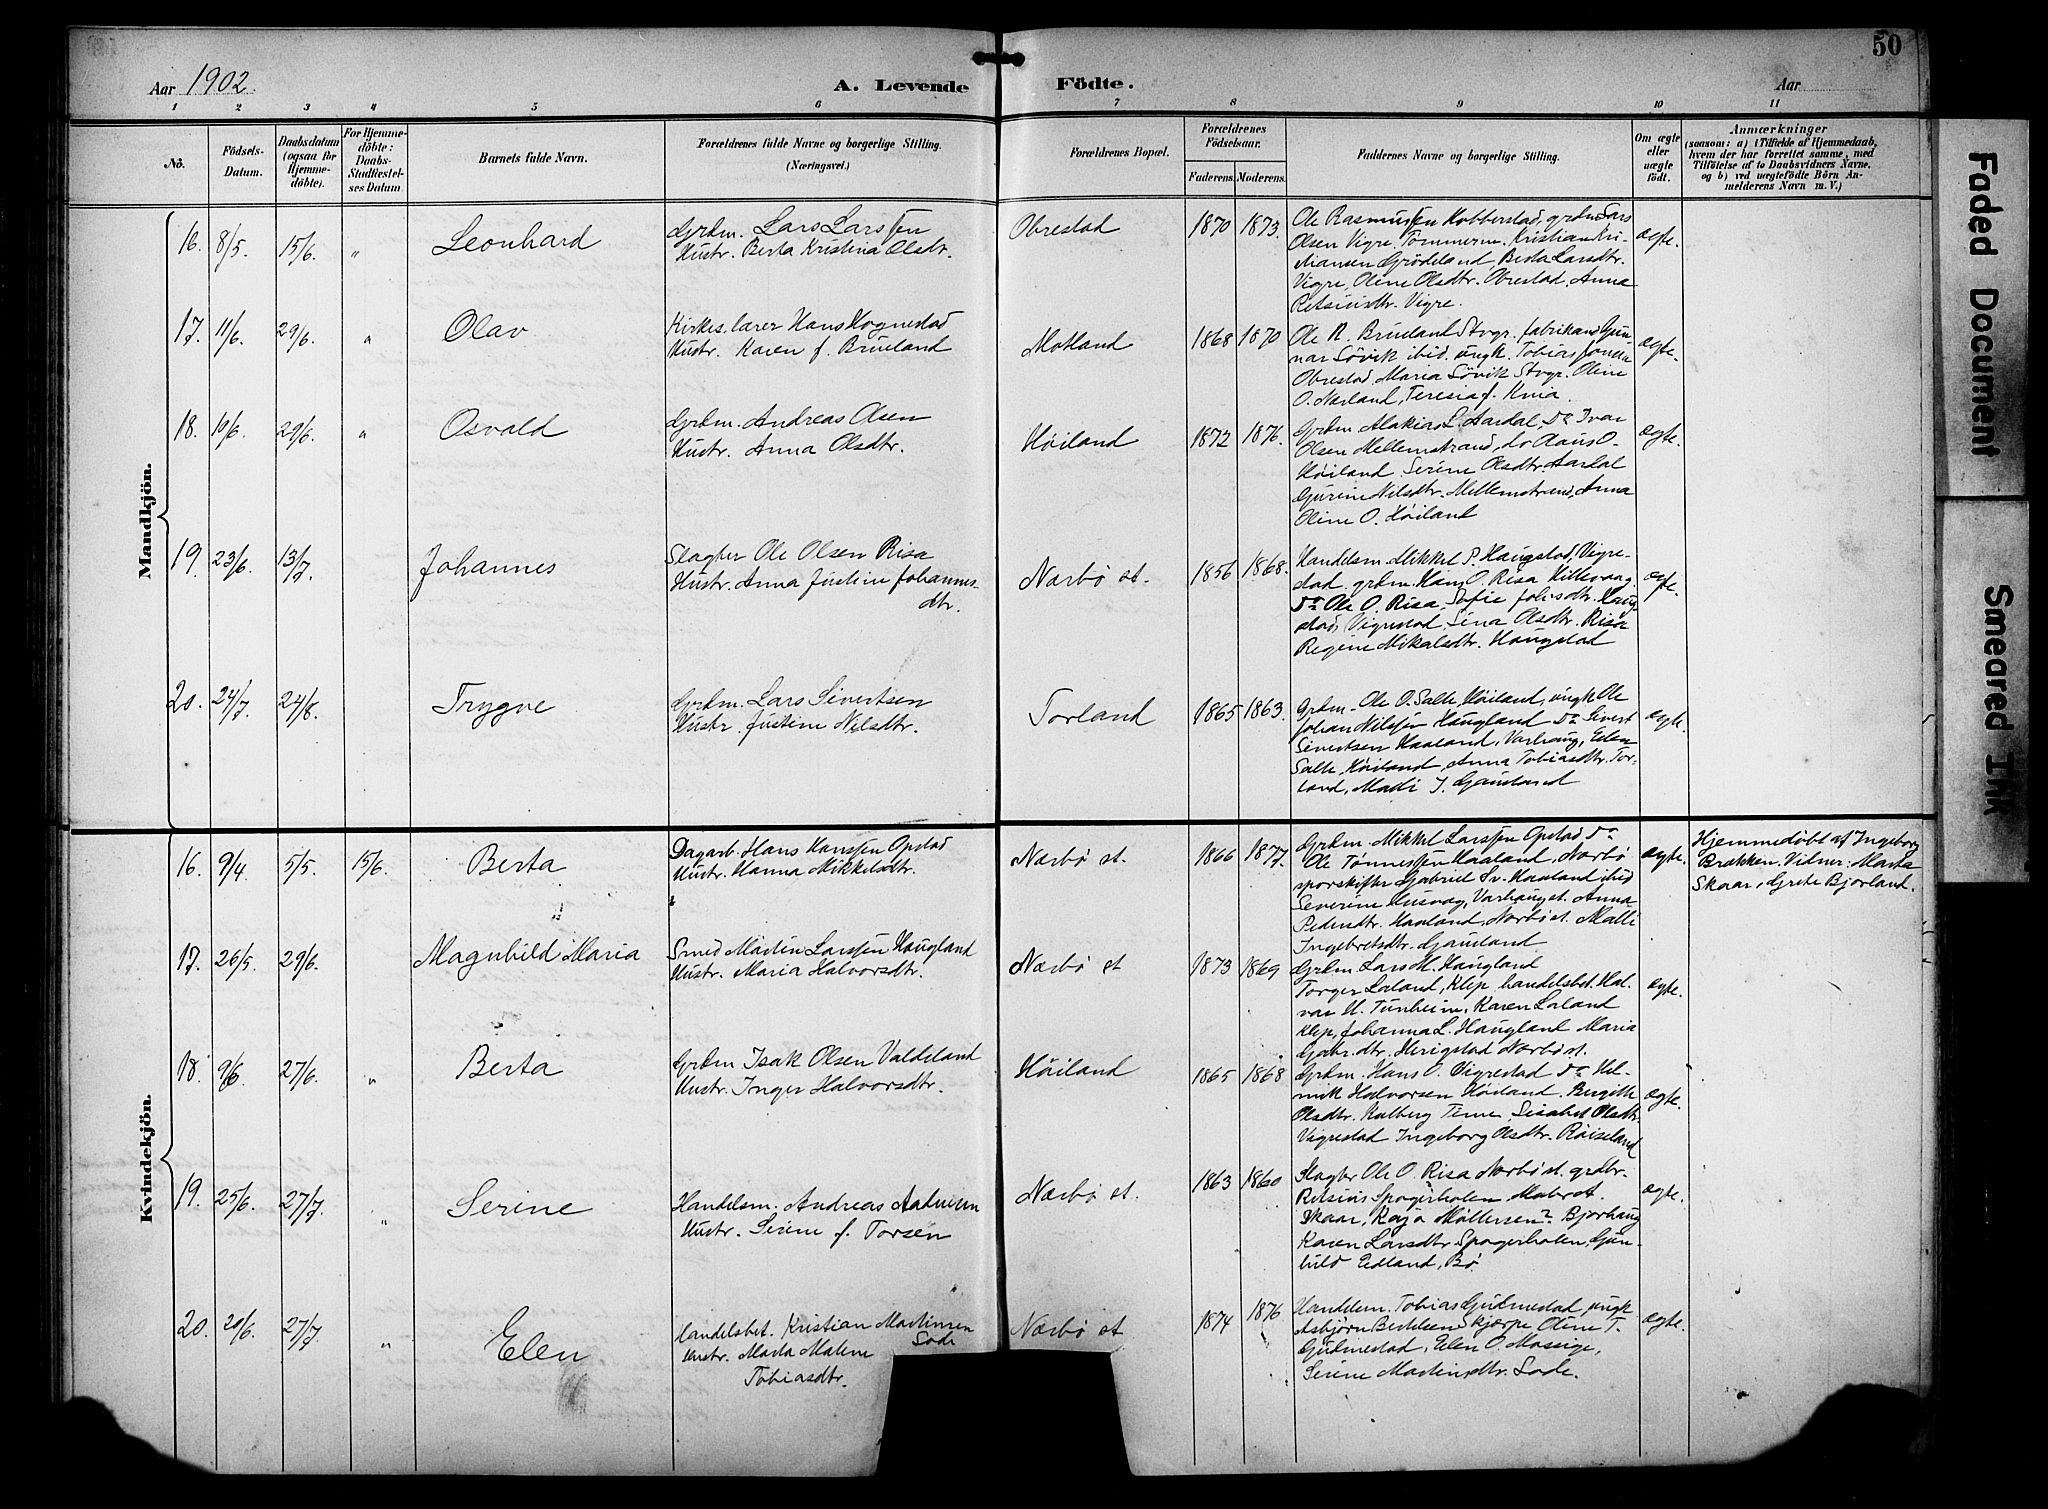 50
Aar 1902.
A. Levende Födte.
Aar
1 2 3 4 5 6 7 8 9 10 11
No.
Födsels-Datum.
Daabsdatum (ogsaa for Hjemme-döbte).
For Hjemme-döbte: Daabs-Stadfæstel-ses Datum.
Barnets fulde Navn.
Forældrenes fulde Navne og borgerlige Stilling.
(Næringsvei.)
Forældrenes Bopæl.
Forældrenes Födselsaar.
Faderens. Moderens.
Faddernes Navne og borgerlige Stilling.
Om ægte eller uægte født.
Anmærkninger
(saasom: a) i Tilfælde af Hjemmedaab,
hvem der har forrettet samme, med
Tilföielse af to Daabsvidners Navne.
og b) ved uægtefödte Börn An-
melderens Navn m. V.)
Mandkjön.
16. 8/5. 15/6. " Leonhard
Grdm. Lars Larssen
Hustr. Berta Kristina Olsdtr.
Obrestad 1870 1873.
Ole Rasmussen Kobberstad, grdm Lars
Olsen Vigre. Tömmerm. Kristian Kri-
stiansen Grödeland, Berta Larsdtr.
Vigre, Oline Olsdtr. Obrestad, Anna
Vigre.
ægte.
17. 11/6. 29/6. " Olav
Kirkes. lærer Hans Kognestad
Hustr. Karen f. Brueland
Motland 1868 1870
Ole R. Brueland Stvgr. fabrikant Gun-
nar Sövik ibid. ungk. Tobias Jonsen
Obrestad, Maria Sövik Stvgr. Oline
O. Nærland, Teresia f. Knia.
ægte.
18. 19/6. 29/6. " Osvald
Grdm. Andreas Olsen
Hustr. Anna Olsdtr.
Höiland 1872 1876.
Grdm Malkias L. Aardal, Do Ivar
Olsen Mellemstrand, do Claus O.
Höiland, Serine Olsdtr. Aardal
Gurine Nilsdtr. Mellemstrand, Anna
Oline O. Höiland
ægte.
19. 23/6. 13/7. Johannes
Slagter Ole Olsen Risa
Hustr. Anna Justine Johannes-
dtr.
Nærbö st. 1856 1868.
Handelsm. Mikkel P. Haugstad, Vigre-
stad, grdm. Hans O. Risa
Do Ole O. Risa, Sofie Johsdtr. Haug-
stad, Vigrestad, Sina Olsdtr. Risa
Regine Mikalsdtr. Haugstad
ægte.
20. 24/7. 24/8. Trygve
Grdm. Lars Sivertsen
Hustr. Justine Nilsdtr.
Torland 1865 1863.
Grdm. Ole O. Salte, Höiland, ungk Ole
Johan Nilssen Haugland Do Sivert
Sivertsen Haaland, Varhaug, Elen
Salte, Höiland, Anna Tobiasdtr. Tor-
land, Malli J. Gauland
ægte.
Kvindekjön.
16. 9/4. 5/5. 15/6. Berta
Dagarb. Hans Hanssen Opstad
Hustr. Hanna Mikkelsdtr.
Nærbö st. 1866 1877.
Grdm. Mikkel Larssen Opstad Do
Ole Tönnessen Haaland, Nærbö
sporskifter Gabriel Sv. Haaland ibid
Severine Husvaag, Varhaug st. Anna
Pedersdtr. Haaland, Nærbö st. Malli
Ingebretsdtr. Gauland
ægte.
Hjemmedöbt af Ingeborg
Brækken. Vidner: Marta
Skaar, Grete Bjorland.
17. 26/5. 29/6. Magnhild Maria
Smed Martin Larssen Haugland
Hustr. Maria Halvorsdtr.
Nærbö st 1873 1869
Grdm. Lars M. Haugland
Torger Laland, Klep, handelsbet. Hal-
vor H. Tunheim, Karen Laland
Klep, Johanna L. Haugland Maria
Gabr.dtr. Herigstad Nærbö st.
ægte.
18. 9/6. 27/6. " Berta
Grdm Isak Olsen Valdeland
Hustr. Inger Halvorsdtr.
Höiland 1865 1868
Grdm. Hans O. Vigrestad Do Hel-
mik Halvorsen Höiland. Birgitte
Olsdtr. Kalberg Time, Lisabet Olsdtr.
Vigrestad Ingeborg Olsdtr. Röiseland
ægte.
19. 25/6. 27/7. " Serine
Handelsm. Andreas Aadnesen
Hustr. Serine f. Torsen
Nærbö st. 1863 1860
Slagter Ole O. Risa Nærbö st. grdbr.
Retsius Spogerholen, Maler A.
Skaar, Kaja Möllersen? Bjorhaug
Karen Larsdtr. Spogerholen, Gun-
hild Edland, Bö
ægte.
20. 20/6. 27/7. " Elen
Handelsbet. Kristian Martinsen
Lode
Hustr. Marta Malene
Tobiasdtr.
Nærbö st 1874 1876
Handelsm. Tobias Gudmestad, ungk
Asbjörn Bertelsen Skjærpe Oline T.
Gudmestad, Elen O. Mossige,
Serine Martinsdtr. Lode.
ægte.
Faded Document
Smeared Ink